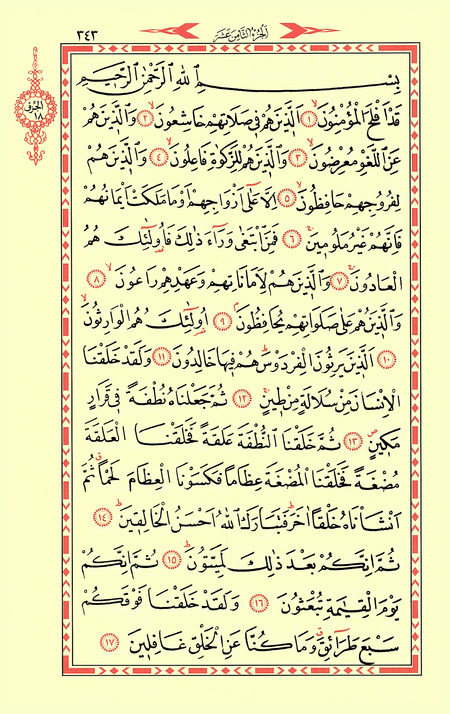 الجزء الثامن عشر
٣٤٣
الجزء
١٨
بسم الله الرحمن الرحيم
قَدْ اَفْلَحَ الْمُؤْمِنُونَۙ ﴿١﴾ اَلَّذٖينَ هُمْ فٖي صَلَاتِهِمْ خَاشِعُونَۙ ﴿٢﴾ وَالَّذٖينَ هُمْ
عَنِ اللَّغْوِ مُعْرِضُونَۙ ﴿٣﴾ وَالَّذٖينَ هُمْ لِلزَّكٰوةِ فَاعِلُونَۙ ﴿٤﴾ وَالَّذٖينَ هُمْ
لِفُرُوجِهِمْ حَافِظُونَۙ ﴿٥﴾ اِلَّا عَلٰٓى اَزْوَاجِهِمْ اَوْ مَا مَلَكَتْ اَيْمَانُهُمْ
فَاِنَّهُمْ غَيْرُ مَلُومٖينَۚ ﴿٦﴾ فَمَنِ ابْتَغٰى وَرَٓاءَ ذٰلِكَ فَاُولٰٓئِكَ هُمُ
الْعَادُونَۚ ﴿٧﴾ وَالَّذٖينَ هُمْ لِاَمَانَاتِهِمْ وَعَهْدِهِمْ رَاعُونَۙ ﴿٨﴾
وَالَّذٖينَ هُمْ عَلٰى صَلَوَاتِهِمْ يُحَافِظُونَۘ ﴿٩﴾ اُولٰٓئِكَ هُمُ الْوَارِثُونَۙ
﴿١٠﴾ اَلَّذٖينَ يَرِثُونَ الْفِرْدَوْسَؕ هُمْ فٖيهَا خَالِدُونَ ﴿١١﴾ وَلَقَدْ خَلَقْنَا
الْاِنْسَانَ مِنْ سُلَالَةٍ مِنْ طٖينٍۚ ﴿١٢﴾ ثُمَّ جَعَلْنَاهُ نُطْفَةً فٖي قَرَارٍ
مَكٖينٍࣕ ﴿١٣﴾ ثُمَّ خَلَقْنَا النُّطْفَةَ عَلَقَةً فَخَلَقْنَا الْعَلَقَةَ
مُضْغَةً فَخَلَقْنَا الْمُضْغَةَ عِظَاماً فَكَسَوْنَا الْعِظَامَ لَحْماًࣗ ثُمَّ
اَنْشَأْنَاهُ خَلْقاً اٰخَرَؕ فَتَبَارَكَ اللّٰهُ اَحْسَنُ الْخَالِقٖينَؕ ﴿١٤﴾
ثُمَّ اِنَّكُمْ بَعْدَ ذٰلِكَ لَمَيِّتُونَؕ ﴿١٥﴾ ثُمَّ اِنَّكُمْ
يَوْمَ الْقِيٰمَةِ تُبْعَثُونَ ﴿١٦﴾ وَلَقَدْ خَلَقْنَا فَوْقَكُمْ
سَبْعَ طَرَٓائِقَࣗ وَمَا كُنَّا عَنِ الْخَلْقِ غَافِلٖينَ ﴿١٧﴾